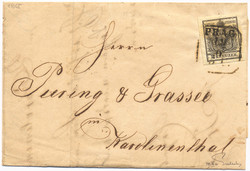 PRAG
Herrn
Puring & Grassee
in
Karolinenthal